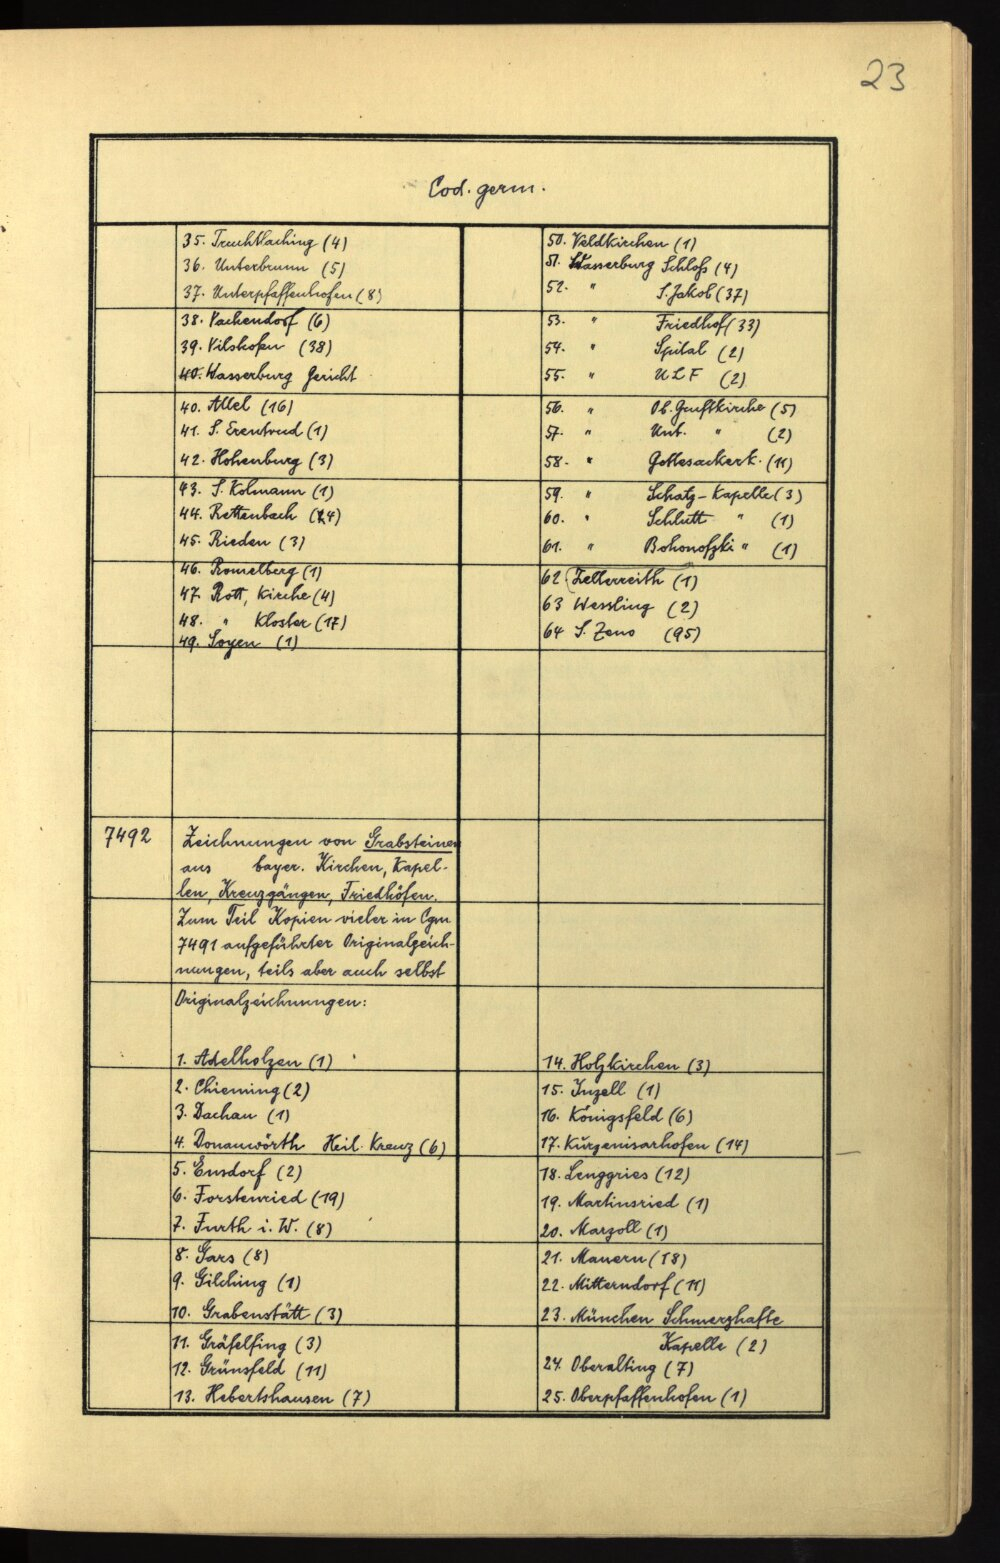 23
Cod. germ.
35. Truchtlaching (4)
36. Unterbrunn (5)
37. Unterpfaffenhofen (8)
38. Vachendorf (6)
39. Vilshofen (38)
40. Wasserburg Gericht
40. Attel (16)
41. S. Erentrud (1)
42. Hohenburg (3)
43. S. Kolmann (1)
44. Rettenbach (24)
45. Rieden (3)
46. Romelberg (1)
47. Rott, Kirche (4)
48. " Kloster (17)
49. Soyen (1)
50. Veldkirchen (1)
51. Wasserburg Schloß (4)
52. " S. Jakob (37)
53. " Friedhof (33)
54. " Spital (2)
55. " ULF (2)
56. " Ob. Gruftkirche (5)
57. " Unt. " (2)
58. " Gottesackerk. (11)
59. " Schatz-Kapelle (3)
60. " Schlutt " (1)
61. " Bohonofzki " (1)
62 (Zellerreith (1)
63 Wessling (2)
64 S. Zeno (95)
7492
Zeichnungen von Grabsteinen
aus bayer. Kirchen, Kapel-
len, Kreuzgängen, Friedhöfen.
Zum Teil Kopien vieler in Cgm
7491 aufgeführter Originalzeich-
nungen, teils aber auch selbst
Originalzeichnungen:
1. Adelholzen (1)
2. Chieming (2)
3. Dachau (1)
4. Donauwörth Heil. Kreuz (6)
5. Ensdorf (2)
6. Forstenried (19)
7. Furth i. W. (8)
8. Gars (8)
9. Gilching (1)
10. Grabenstätt (3)
11. Gräfelfing (3)
12. Grünsfeld (11)
13. Hebertshausen (7)
14. Holzkirchen (3)
15. Inzell (1)
16. Königsfeld (6)
17. Kürzenisarhofen (14)
18. Lenggries (12)
19. Martinsried (1)
20. Marzoll (1)
21. Mauern (18)
22. Mitterndorf (11)
23. München Schmerzhafte
Kapelle (2)
24. Oberalting (7)
25. Oberpfaffenhofen (1)